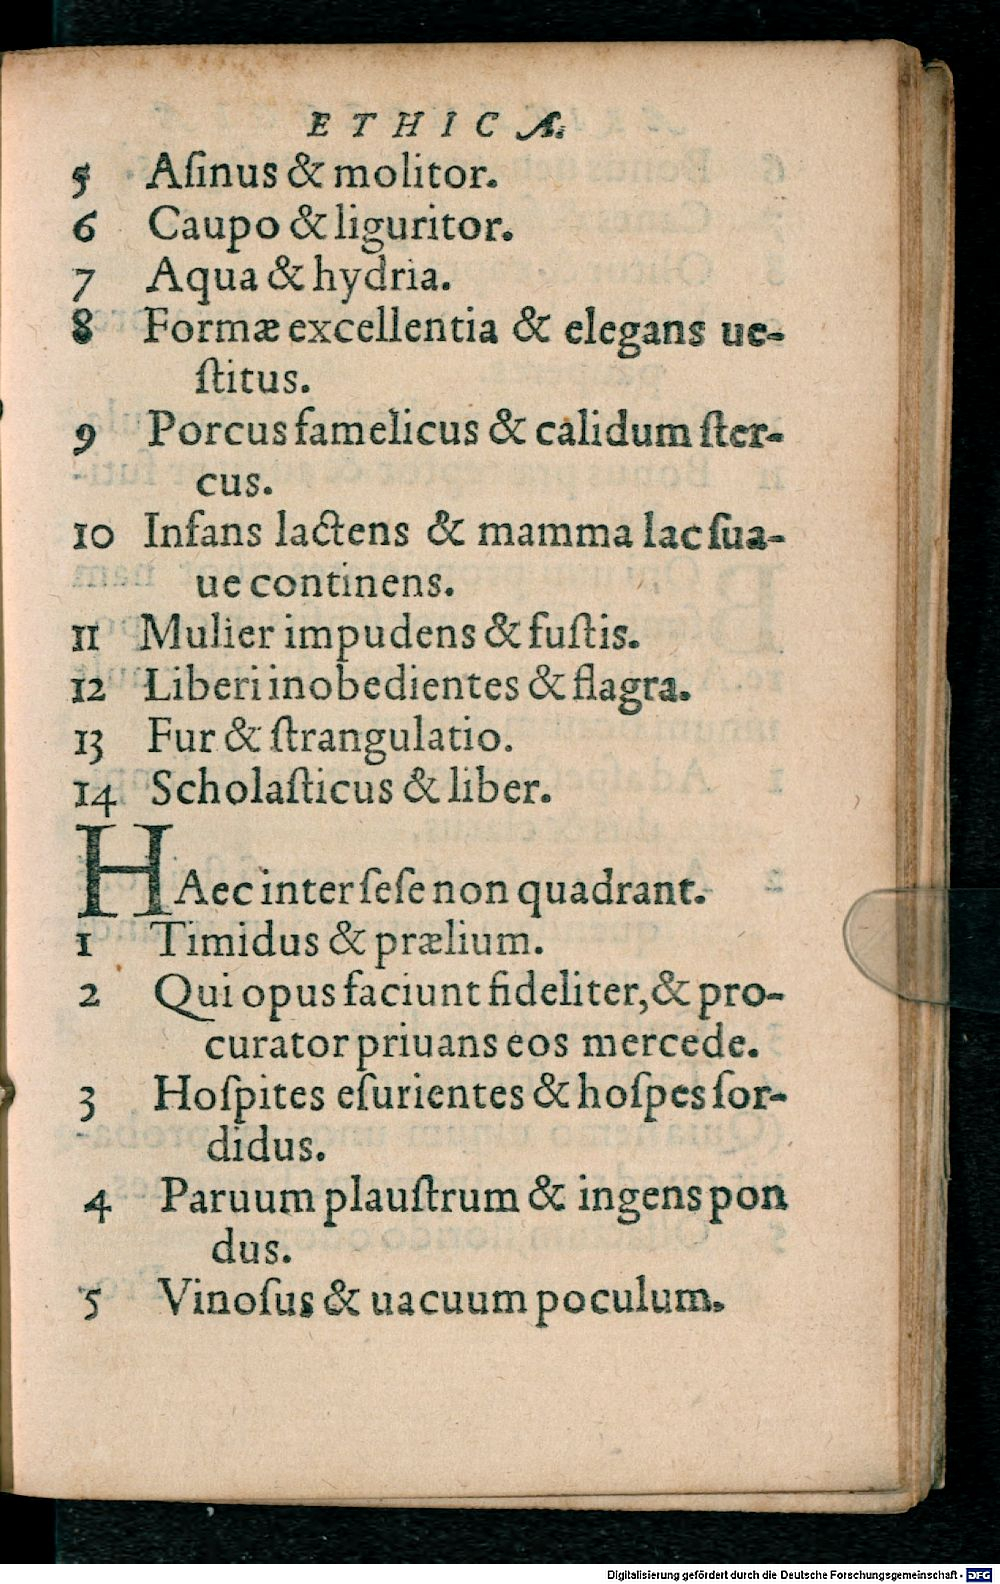 ETHICA.
5 Aſinus & molitor.
6 Caupo & liguritor.
7 Aqua & hydria.
8 Formæ excellentia & elegans ue-
ſtitus.
9 Porcus famelicus & calidum ſter-
cus.
10 Infans lactens & mamma lac ſua-
ue continens.
11 Mulier impudens & fuſtis.
12 Liberi inobedientes & flagra.
13 Fur & ſtrangulatio.
14 Scholaſticus & liber.
HAec inter ſeſe non quadrant.
1 Timidus & prælium.
2 Qui opus faciunt fideliter, & pro-
curator priuans eos mercede.
3 Hoſpites eſurientes & hoſpes ſor-
didus.
4 Paruum plauſtrum & ingens pon
dus.
5 Vinoſus & uacuum poculum.
Digitalisierung gefördert durch die Deutsche Forschungsgemeinschaft - DFG